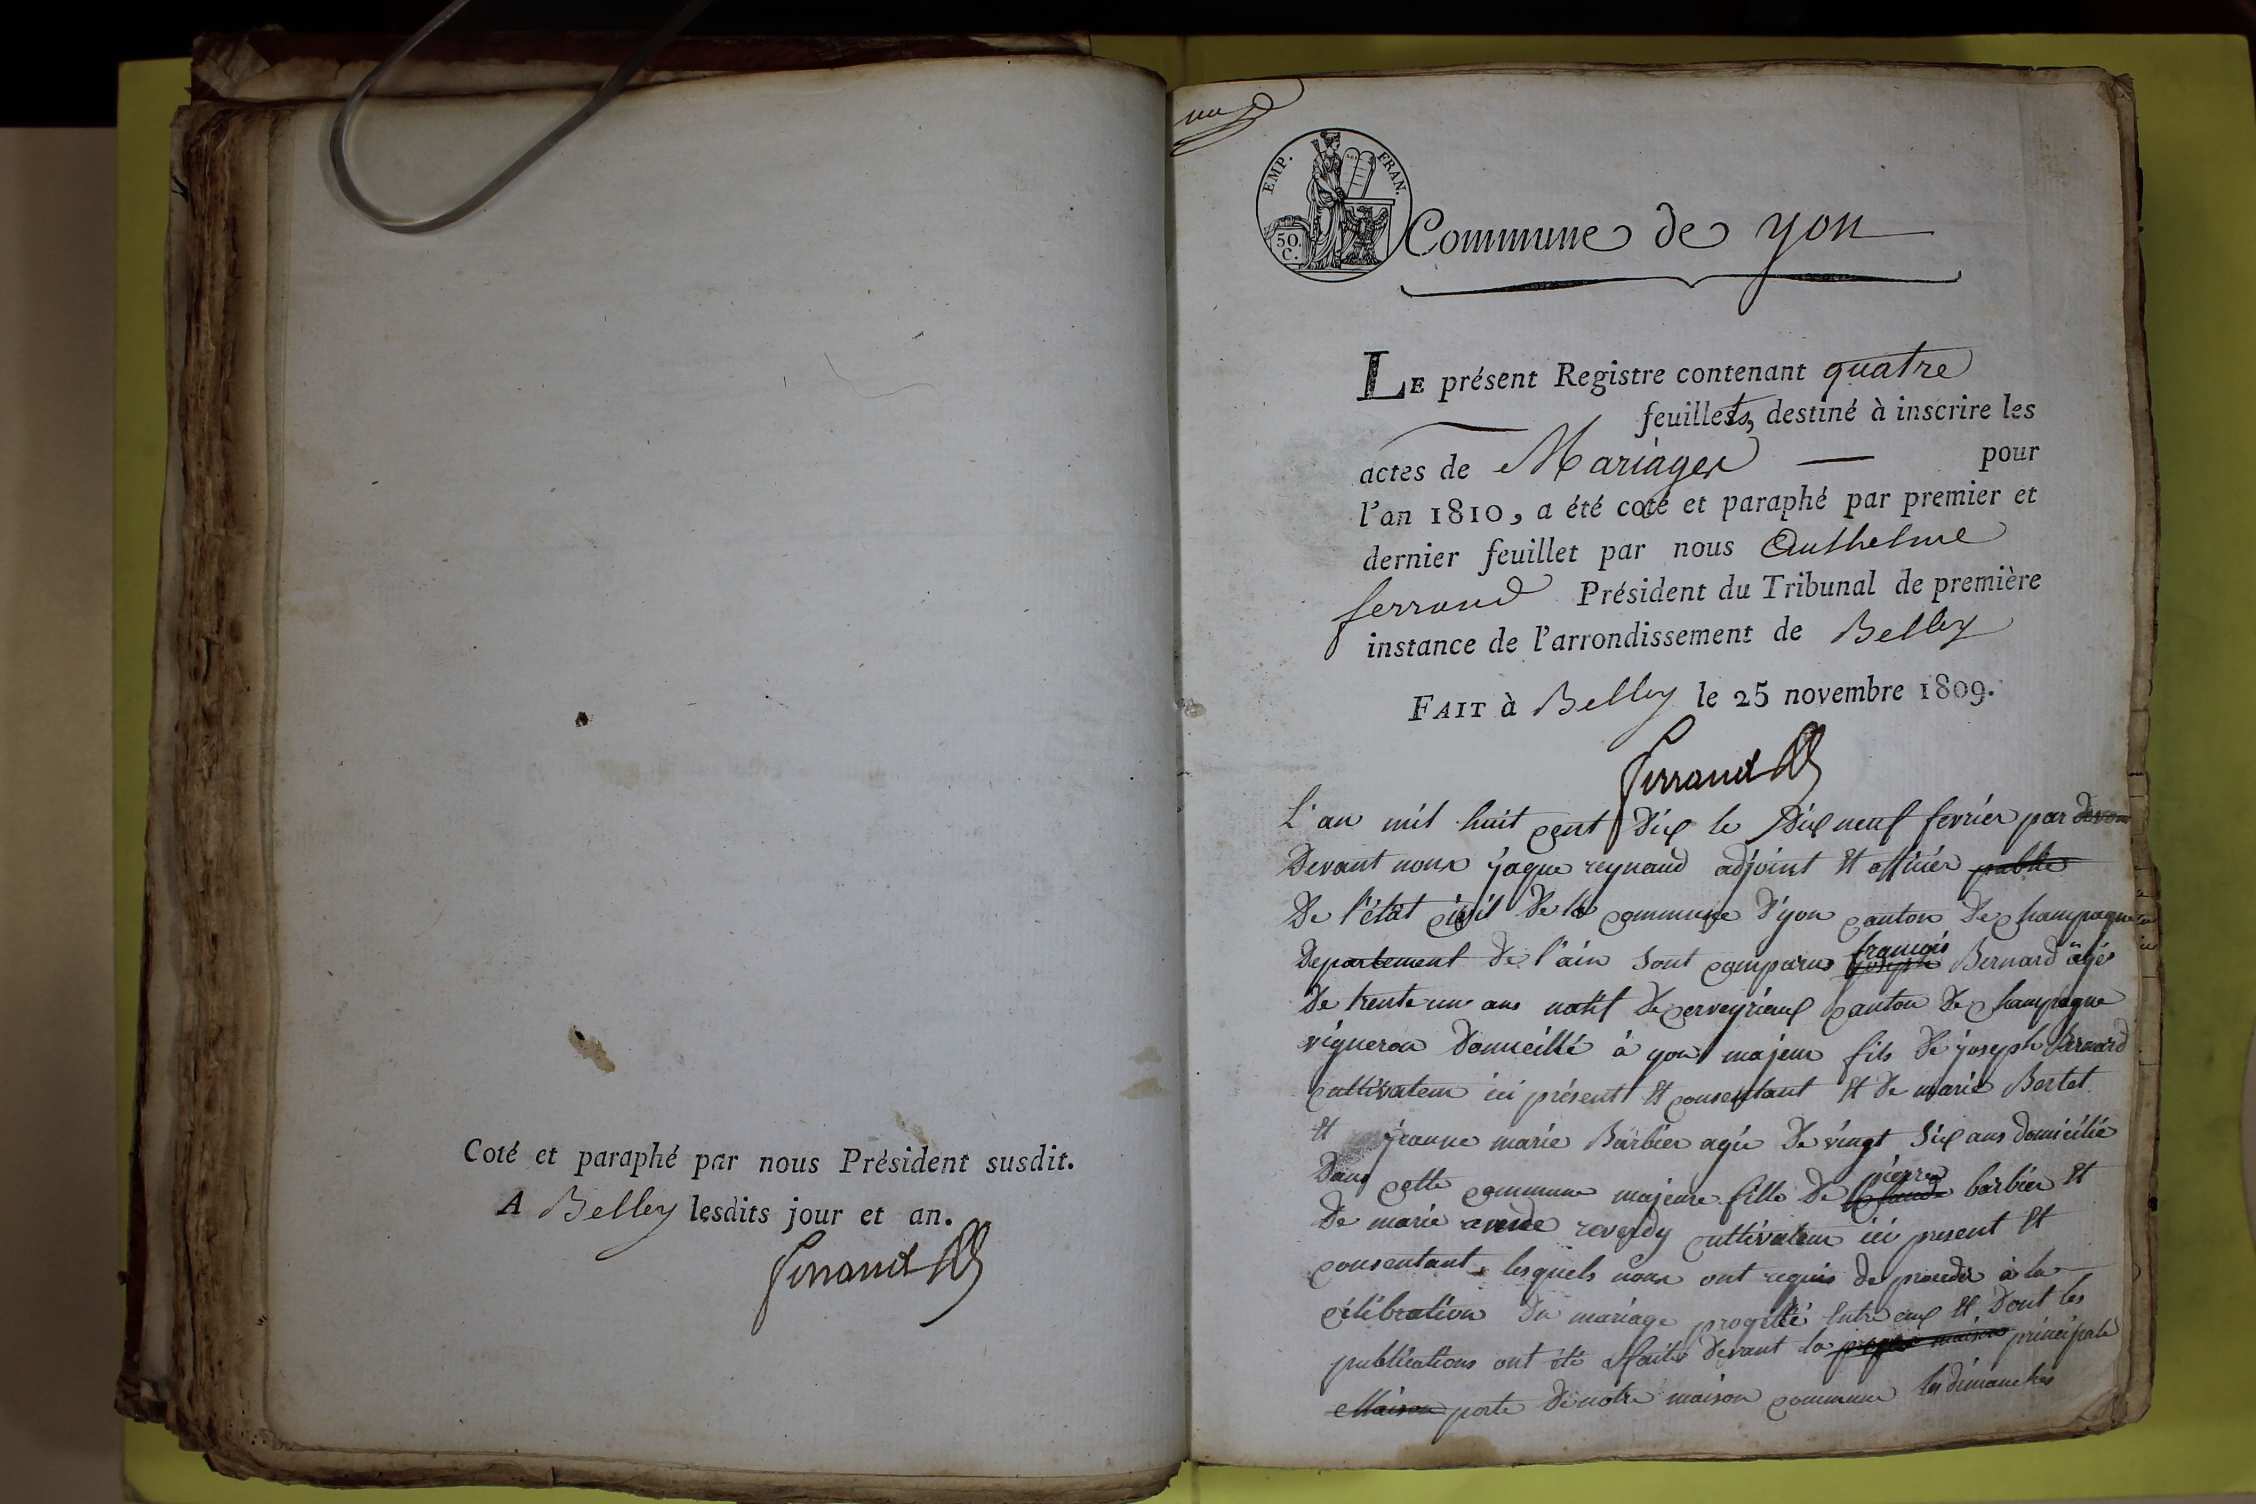 Coté et paraphé par nous Président susdit.
A Belley lesdits jour et an.
Ferrand
un
EMP. FRAN.
50.
C.
Commune de yon
LE présent Registre contenant quatre
feuillets, destiné à inscrire les
actes de Mariages — pour
l'an 1810, a été coté et paraphé par premier et
dernier feuillet par nous Anthelme
ferrand Président du Tribunal de première
instance de l'arrondissement de Belley
FAIT à Belley le 25 novembre 1809.
Ferrand
L'an mil huit cent dix le dix neuf fevrier par devan
Devant nous jaque reynaud adjoint et officier public
De l'état civil de la commune d'yon canton de champagne
Departement de l'ain sont comparus françois joseph Bernard agé
de trente un ans natif de cerveyrieux canton de champagne
vigneron domicillié à yon majeur fils de joseph bernard
cultivateur ici présent et consentant et de marie Bertet
et jeanne marie Barbier agée de vingt six ans domicilié
Dans cette commune majeure fille de pierre Claude barbier et
De marie reverdy cultivateur ici present et
consentant, lesquels nous ont requis de proceder à la
célébration du mariage progetté entre eux et dont les
publications ont été faites devant la maison principale
Maison porte de notre maison commune les dimanches